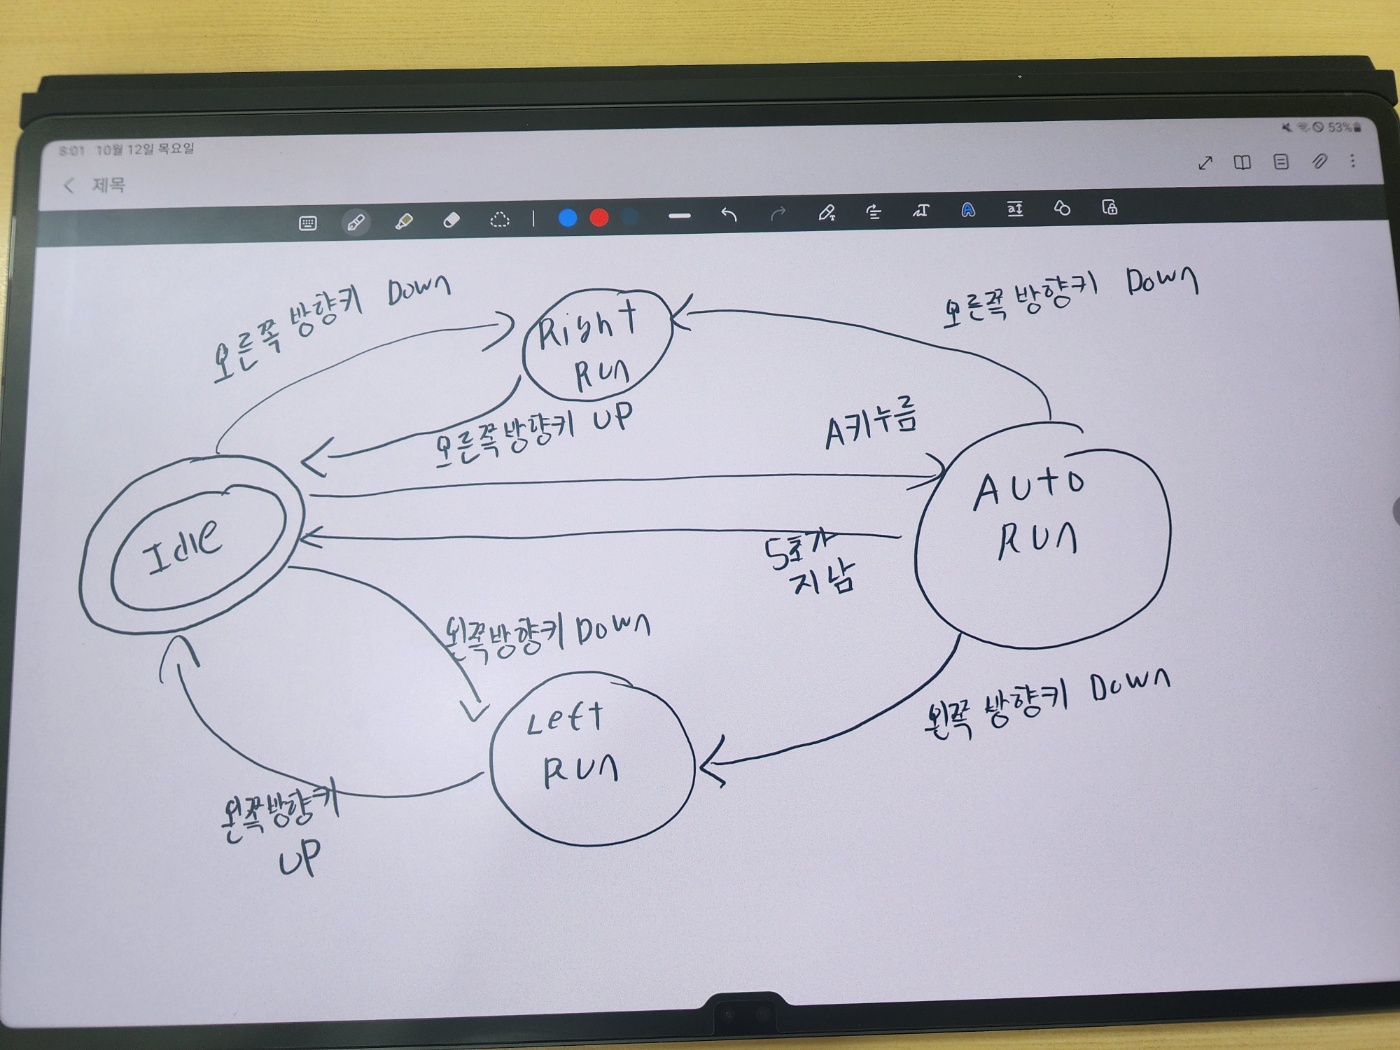 8:01 10월 12일 목요일
53%
제목
오른쪽 방향키 Down
오른쪽 방향키 Down
Right
Run
오른쪽방향키 UP
A키누름
Idle
Auto
RUN
5초가
지남
왼쪽방향키 Down
Left
RUN
왼쪽 방향키 Down
왼쪽방향키
UP